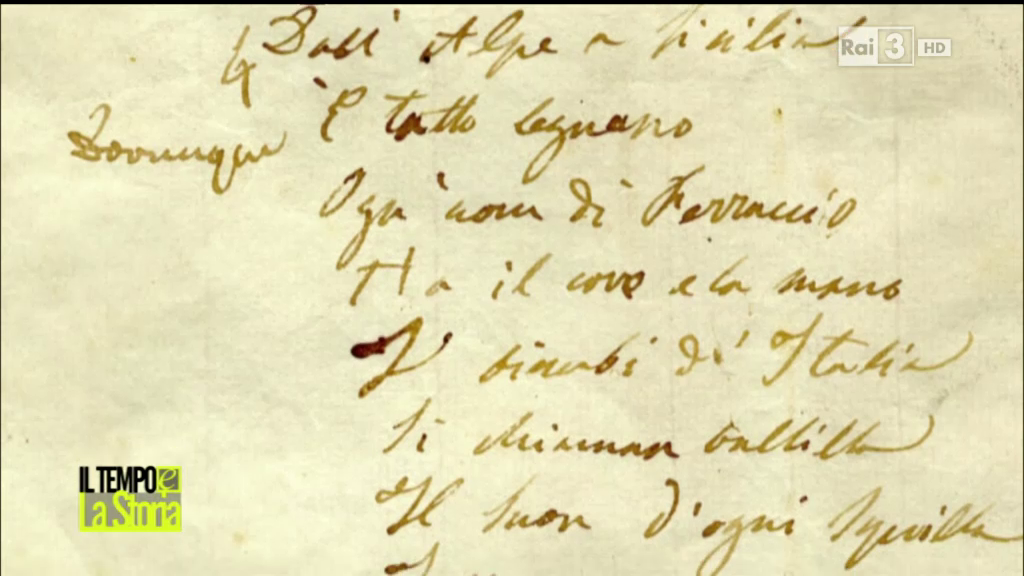 Dall' Alpe a Sicilia
Rai 3 HD
Dovunque
È tutto Legnano
Ogn' uom di Ferruccio
Ha il core e la mano
I bimbi d' Italia
Si chiaman Balilla
Il suon d'ogni squilla
IL TEMPO e
La Storia